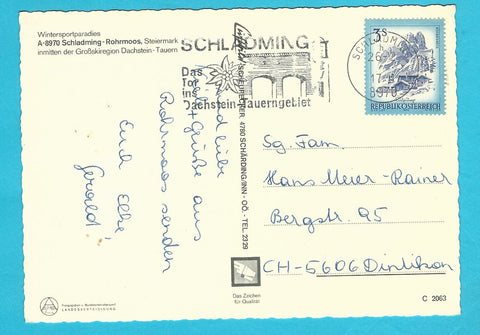 Wintersportparadies
A-8970 Schladming-Rohrmoos, Steiermark
inmitten der Großskiregion Dachstein-Tauern
SCHLADMING
Das
Tor
ins
Dachstein-Tauerngebiet
SCHLADM
17
8970
3 S
REPUBLIK ÖSTERREICH
4780 SCHÄRDING/INN - OÖ. - TEL. 2329
liebe
Grüße aus
Rohrmoos senden
Euch Elke
Gerald!
Sg. Fam.
Hans Meier-Rainer
Bergstr. 95
CH-5606 Dintikon
Das Zeichen
für Qualität
LANDESVERTEIDIGUNG
C 2063